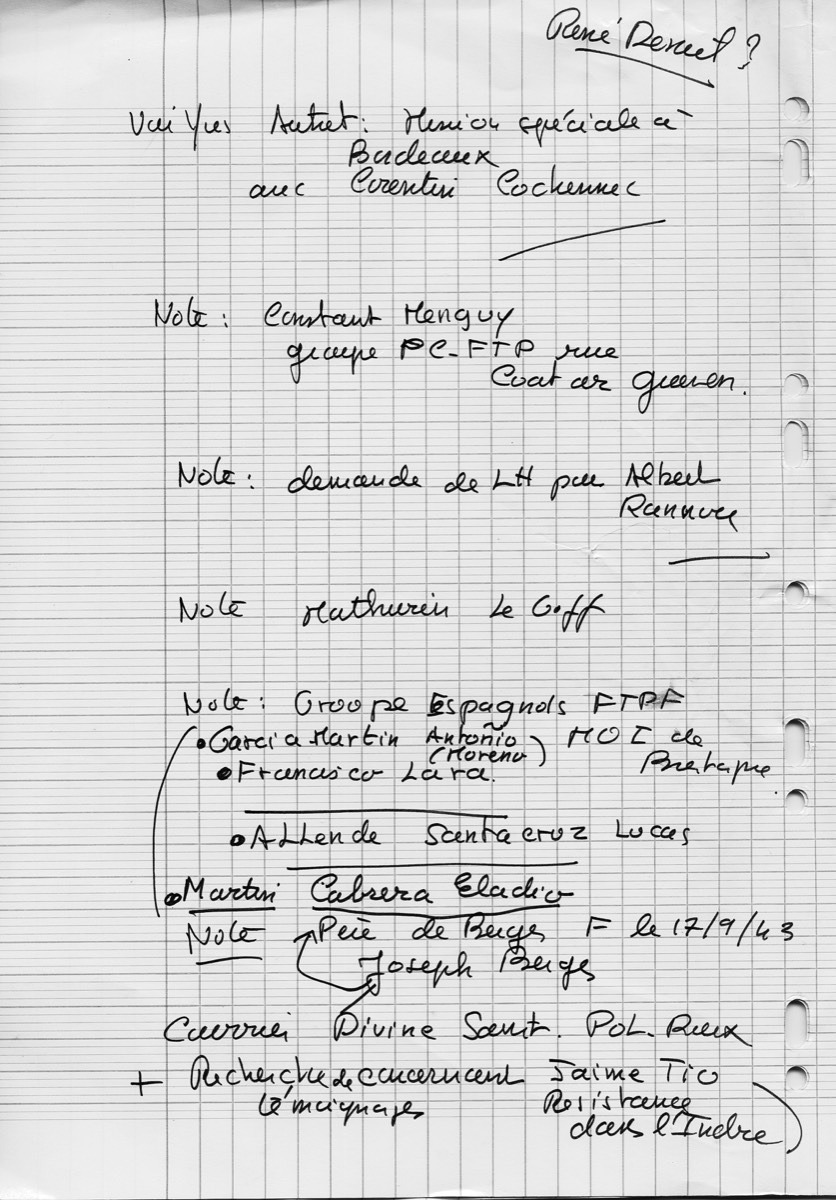 René ?
Voir Yves Autret : Mission spéciale à
Bordeaux
avec Corentin Cochennec
Note : Constant Menguy
groupe PC-FTP rue
Coat ar Gueven.
Note : demande de LH par Albert
Rannou
Note Mathurin Le Goff
Note : Groupe Espagnols FTPF
• Garcia Martin Antoñio MOI de
(Moreno) Bretagne
• Francisco Lara.
• ALLende Santacruz Lucas
• Martin Cabrera Eladio
Note Père de Berges F le 17/9/43
Joseph Berges
Courrier Divine Saint. POL. Roux
+ Recherche de concernant Jaime Tio
témoignages Résistance
dans l'Indre